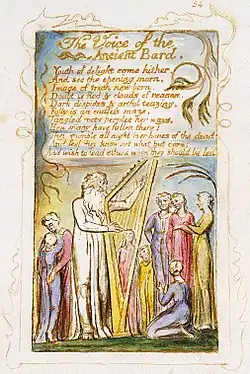 54
The Voice of the
Ancient Bard.
Youth of delight come hither.
And see the opening morn,
Image of truth new born.
Doubt is fled & clouds of reason.
Dark disputes & artful teazing.
Folly is an endless maze,
Tangled roots perplex her ways,
How many have fallen there!
They stumble all night over bones of the dead
And feel they know not what but care
And wish to lead others when they should be led